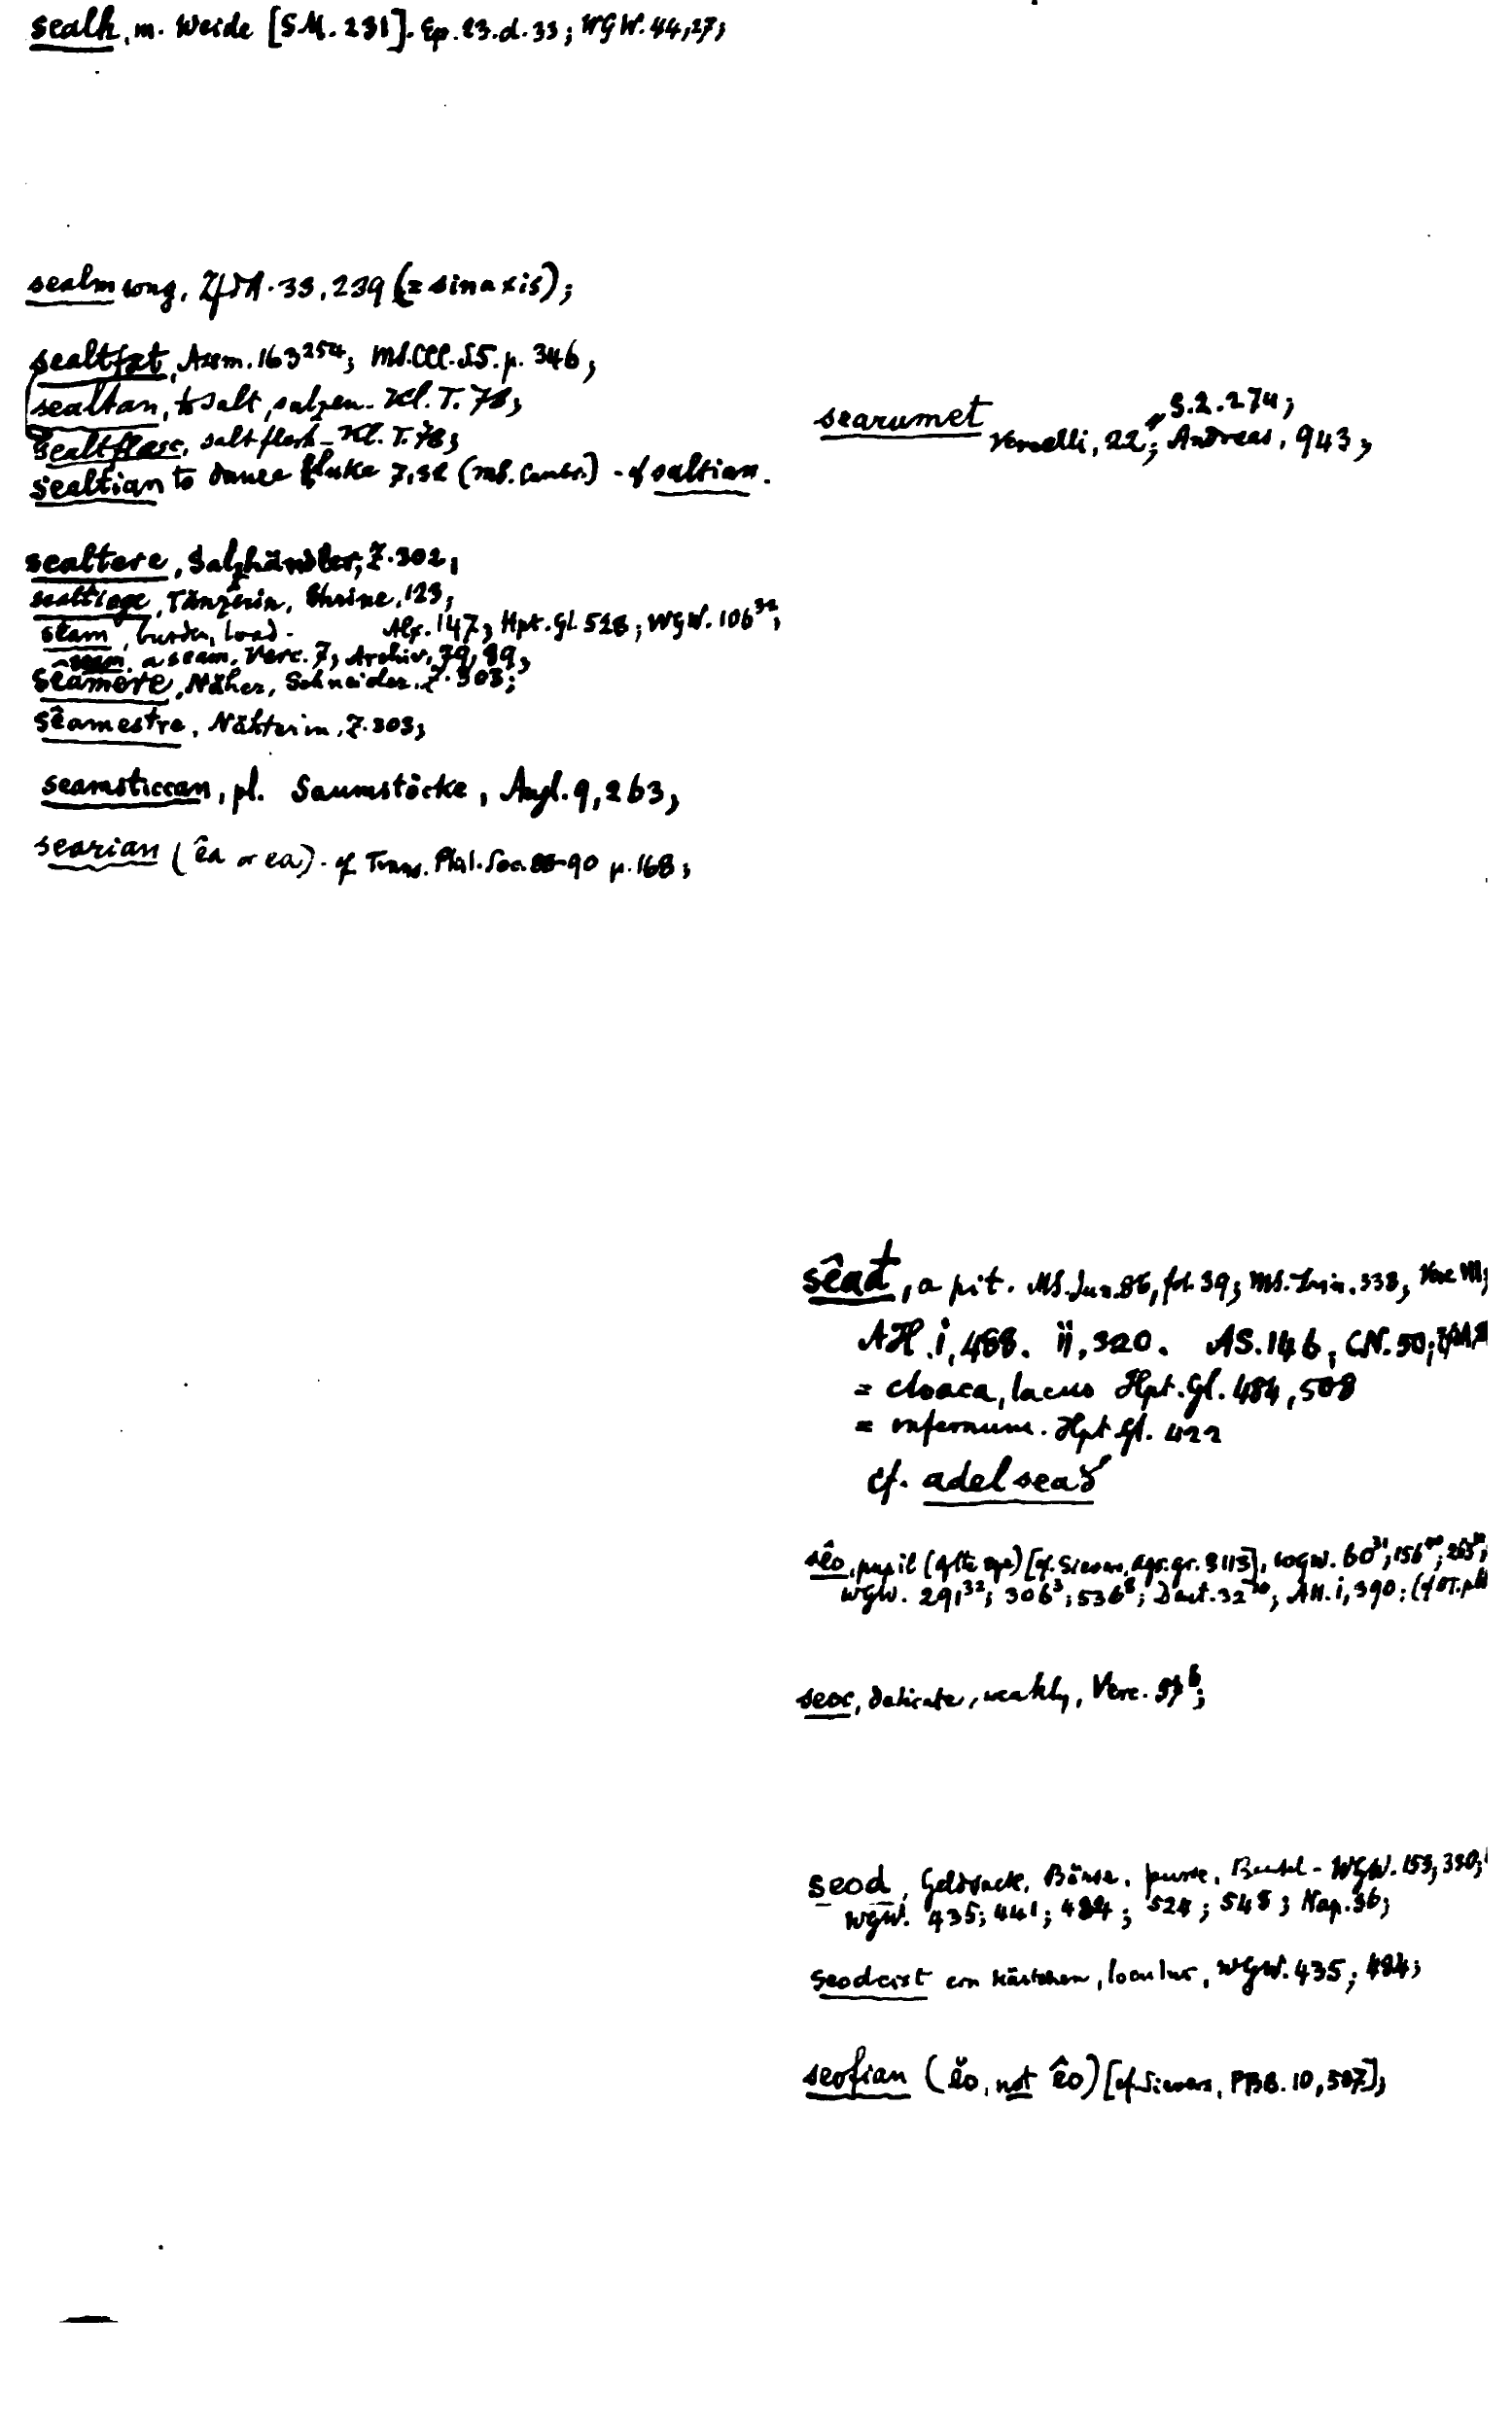 sealh, m. Weide [S.M. 231]. Ep. 23.d.33; WGW. 44,27;
sealmsong, ZfdA. 33, 239 (= sinaxis);
sealtfæt, Assm. 163²⁵⁴; MS. CCC. S5. p. 346;
sealtan, to salt, salzen. Kl. T. 78;
sealtflæsc, salt flesh – Kl. T. 78;
sealtian to dance Luke 7,32 (MS. Cambr.) – cf saltian.
sealtere, Salzhändler, Z. 302;
sealticge, Tänzerin, Shrine, 123;
sêam, burden, load. Alf. 147; Hpt. Gl. 528; WGW. 106³²;
~seam, a seam, Verc. 7; Archiv, 79, 89;
sêamere, Näher, Schneider. Z. 303;
sêamestre, Nähterin, Z. 303;
seamsticcan, pl. Saumstöcke, Angl. 9, 263;
searian (êa or ea) – cf Trans. Phil. Soc. 88-90 p. 168;
searumet
S. 2. 274;
Vercelli, 22; Andreas, 943;
sêað, a pit. MS. Jun. 86, fol. 39; MS. Junin. 338; Verc VII;
AH. i, 488. ii, 320. AS. 146, CN. 50;
= cloaca, lacus Hpt. Gl. 484, 508
= infernum. Hpt Gl. 422
cf. adelseað
sêo, pupil (of the eye) [cf. Sievers, Ags. gr. § 113], WGW. 60³¹; 156⁴⁰; 263
WGW. 291³²; 306³; 536⁸; Deut. 32¹⁰; AH. i, 390; (cf BT.
seoc, delicate, weakly, Verc. 93⁶;
seod, Geldsack, Börse, purse, Beutel – WGW. 153; 330;
WGW. 435; 441; 484; 524; 548; Nap. 36;
seodcist ein Kästchen, loculus, WGW. 435; 484;
seofian (ĕo, not êo) [cf Sievers, PBB. 10, 507];